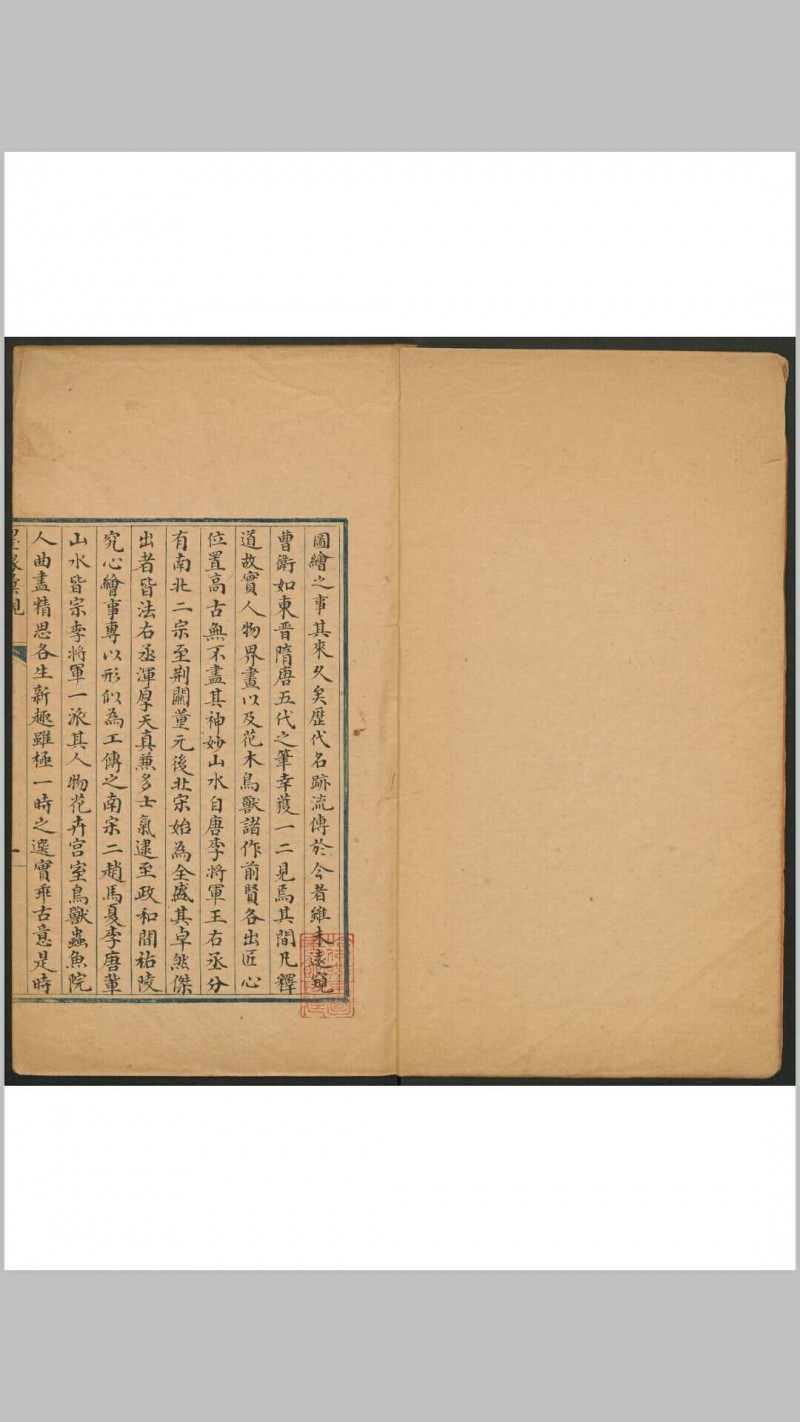 圖繪之事其來久矣歷代名跡流傳於今者雖未遠窺
曹衛如東晉隋唐五代之筆幸獲一二見焉其間凡釋
道故實人物界畫以及花木鳥獸諸作前賢各出匠心
位置高古無不盡其神妙山水自唐李將軍王右丞分
有南北二宗至荆關董元後北宋始為全盛其卓然傑
出者皆法右丞渾厚天真兼多士氣逮至政和間祐陵
究心繪事專以形似為工傳之南宋二趙馬夏李唐輩
山水皆宗李將軍一派其人物花卉宫室鳥獸蟲魚院
人曲盡精思各生新趣雖極一時之選實乖古意是時